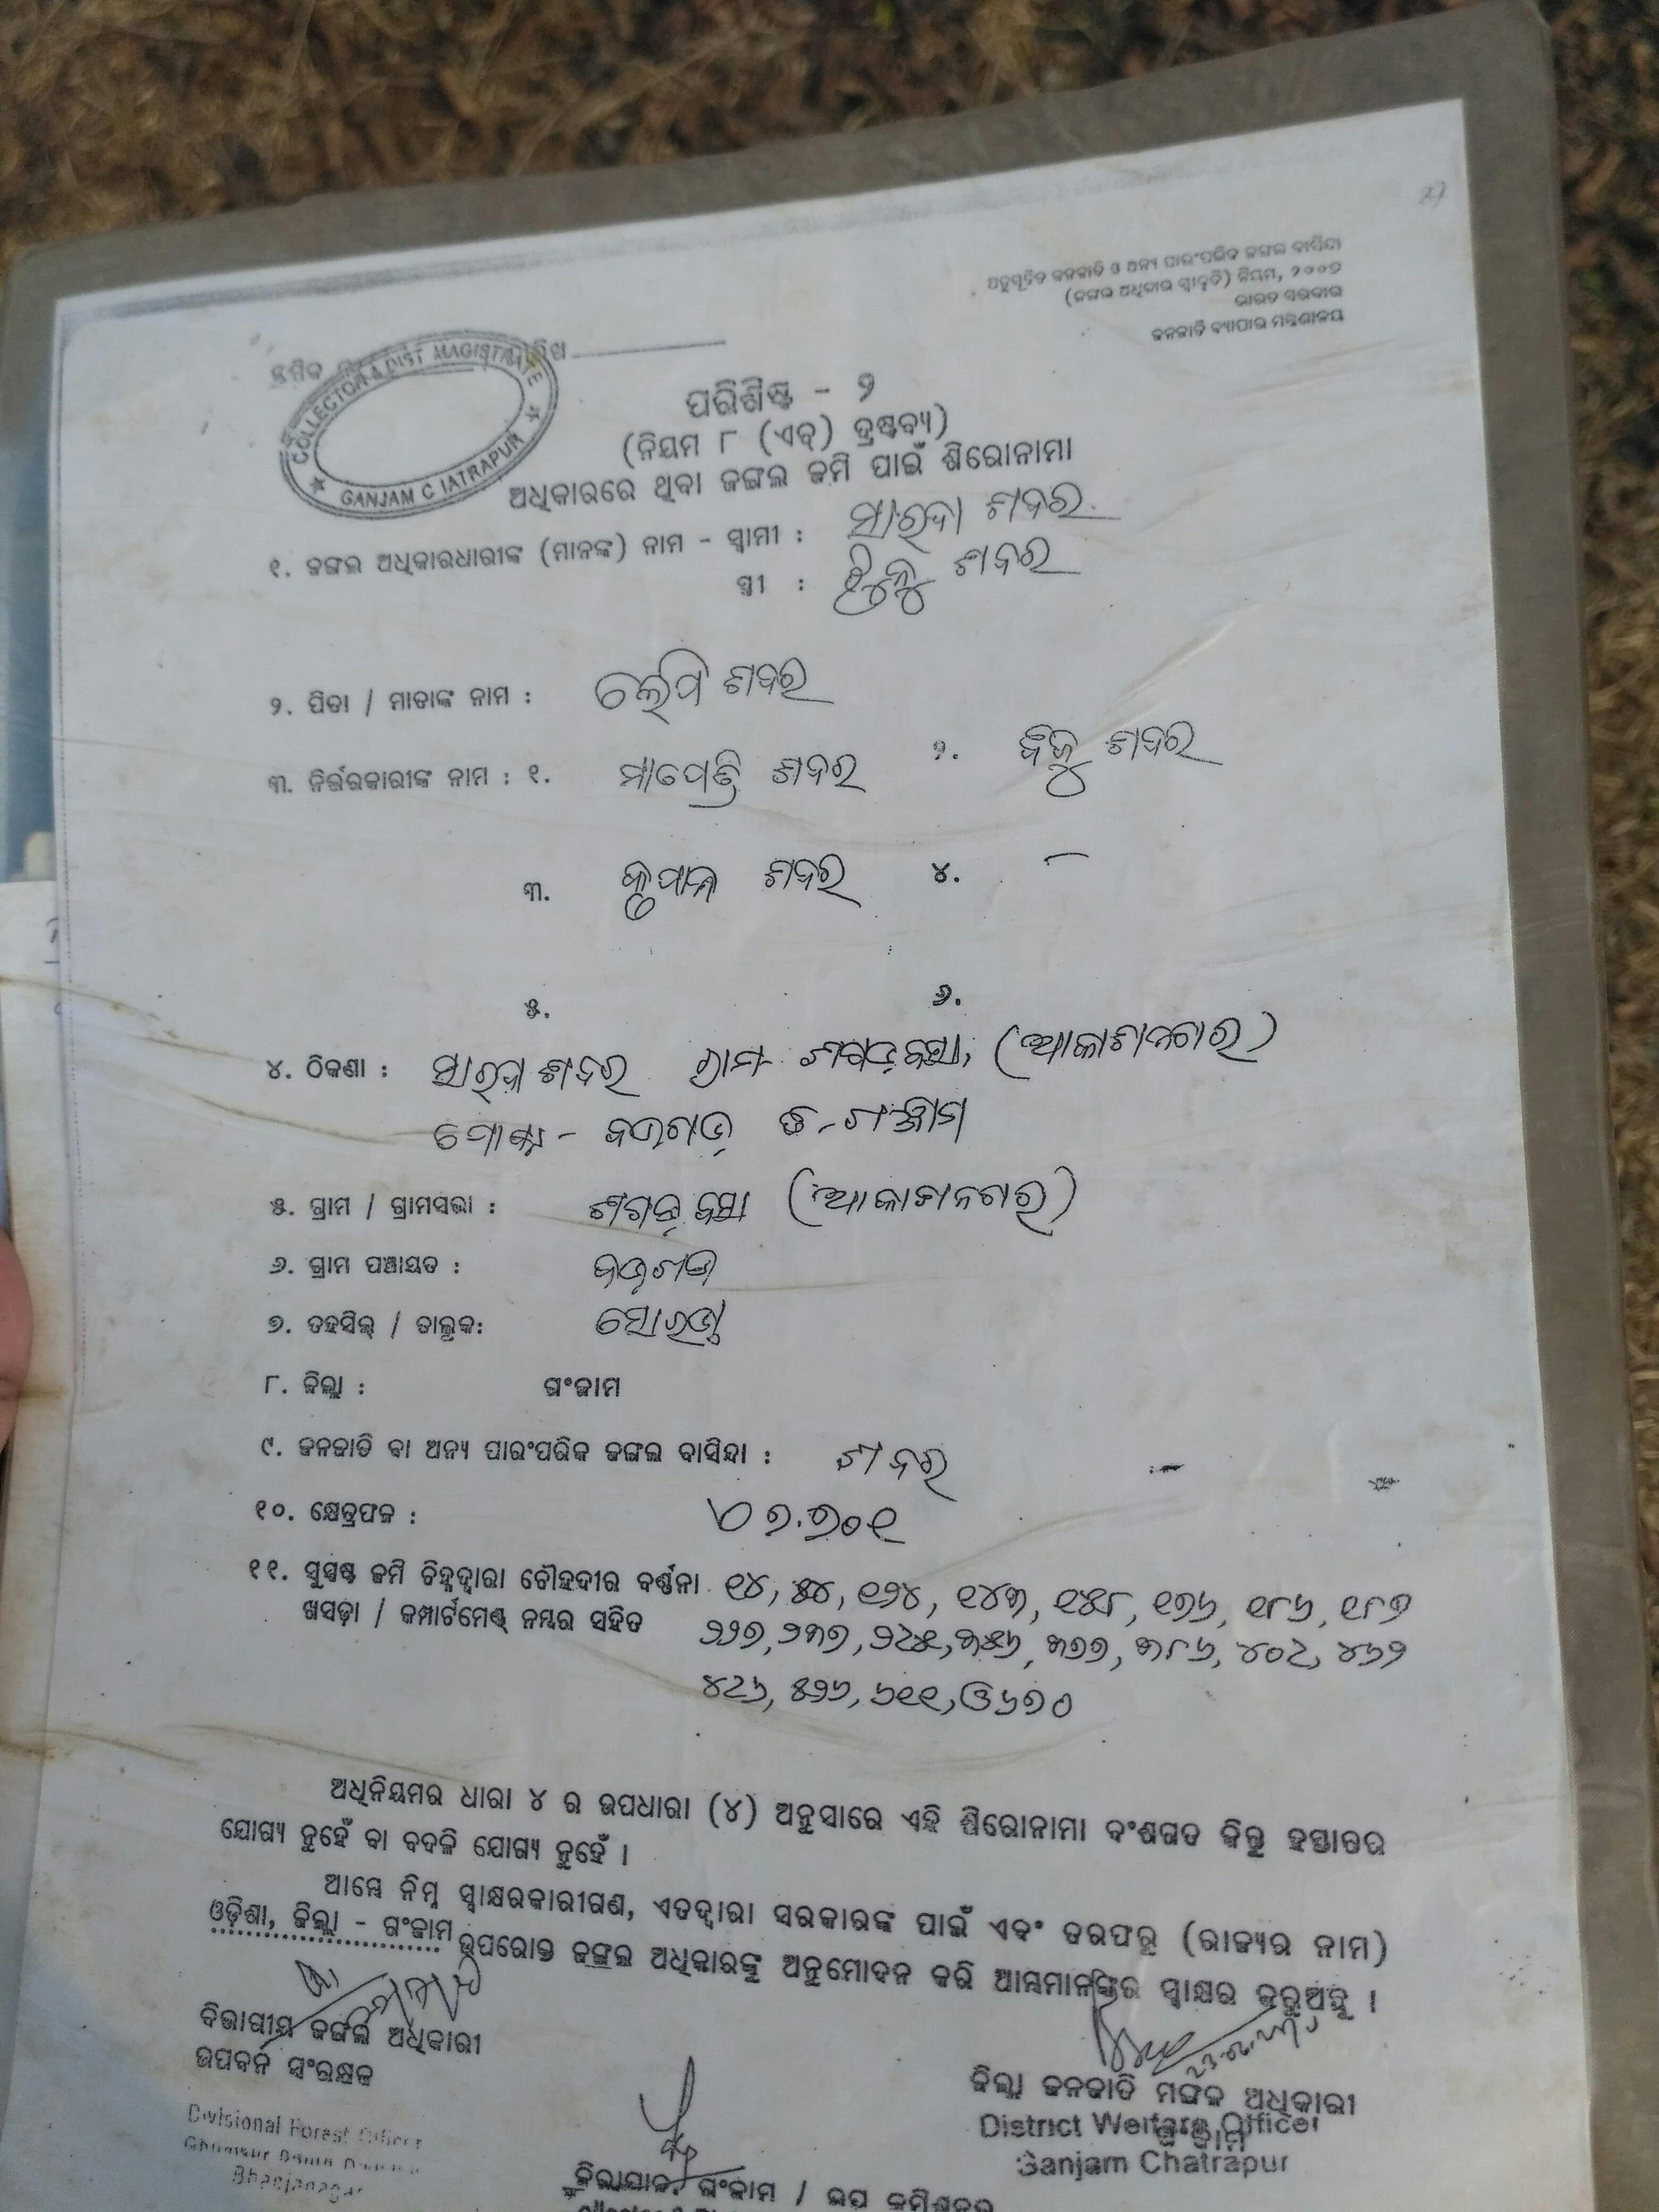 ଅନୁସୂଚିତ ଜନଜାତି ଓ ଅନ୍ୟ ପାରଂପରିକ ଜଙ୍ଗଲ ବାସିନ୍ଦା
(ଜଙ୍ଗଲ ଅଧିକାର ସ୍ୱୀକୃତି) ନିୟମ, ୨୦୦୭
ଭାରତ ସରକାର
ଜନଜାତି ବ୍ୟାପାର ମନ୍ତ୍ରଣାଳୟ
କ୍ରମିକ
COLLECTOR & DIST MAGISTRATE
GANJAM C IATRAPUR
ପରିଶିଷ୍ଟ - ୨
(ନିୟମ ୮ (ଏଚ୍) ଦ୍ରଷ୍ଟବ୍ୟ)
ଅଧିକାରରେ ଥିବା ଜଙ୍ଗଲ ଜମି ପାଇଁ ଶିରୋନାମା
୧. ଜଙ୍ଗଲ ଅଧିକାରଧାରୀଙ୍କ (ମାନଙ୍କ) ନାମ - ସ୍ୱାମୀ : ସାରଦା ଶବର
ସ୍ତ୍ରୀ : ଶବର
୨. ପିତା / ମାତାଙ୍କ ନାମ : ଶବର
୩. ନିର୍ଭରକାରୀଙ୍କ ନାମ : ୧. ଶବର ୨. ବିଜୁ ଶବର
୩. ଶବର ୪. –
୫. ୬.
୪. ଠିକଣା : ସାରଦା ଶବର ଗ୍ରାମ- ଶଗଡ଼ବସା, (ଆକାଶନଗର)
ପୋଷ୍ଟ - ବଡ଼ଗଡ଼ ଜି-ଗଞ୍ଜାମ
୫. ଗ୍ରାମ / ଗ୍ରାମସଭା : ଶଗଡ଼ବସା (ଆକାଶନଗର)
୬. ଗ୍ରାମ ପଞ୍ଚାୟତ : ବଡ଼ଗଡ଼
୭. ତହସିଲ୍ / ତାଲୁକ: ସୋରଡ଼ା
୮. ଜିଲ୍ଲା : ଗଂଜାମ
୯. ଜନଜାତି ବା ଅନ୍ୟ ପାରଂପରିକ ଜଙ୍ଗଲ ବାସିନ୍ଦା : ଶବର
୧୦. କ୍ଷେତ୍ରଫଳ :
୧୧. ସୁସ୍ପଷ୍ଟ ଜମି ଚିହ୍ନଦ୍ୱାରା ଚୌହଦୀର ବର୍ଣ୍ଣନା ୧୪, ୫୪, ୧୨୪, ୧୪୩, ୧୫୮, ୧୭୬, ୧୮୬, ୧୮୭
ଖସଡ଼ା / କମ୍ପାର୍ଟମେଣ୍ଟ ନମ୍ବର ସହିତ ୨୨୭, ୨୩୭, ୨୯୫, ୩୫୬, ୩୭୭, ୩୮୬, ୪୦୯, ୪୬୨
୪୯୬, ୫୨୬, ୬୧୧, ଓ ୬୭୦
ଅଧିନିୟମର ଧାରା ୪ ର ଉପଧାରା (୪) ଅନୁସାରେ ଏହି ଶିରୋନାମା ବଂଶଗତ କିନ୍ତୁ ହସ୍ତାନ୍ତର
ଯୋଗ୍ୟ ନୁହେଁ ବା ବଦଳି ଯୋଗ୍ୟ ନୁହେଁ ।
ଆମ୍ଭେ ନିମ୍ନ ସ୍ୱାକ୍ଷରକାରୀଗଣ, ଏତଦ୍ୱାରା ସରକାରଙ୍କ ପାଇଁ ଏବଂ ତରଫରୁ (ରାଜ୍ୟର ନାମ)
ଓଡ଼ିଶା, ଜିଲ୍ଲା - ଗଂଜାମ ଉପରୋକ୍ତ ଜଙ୍ଗଲ ଅଧିକାରଙ୍କୁ ଅନୁମୋଦନ କରି ଆମ୍ଭମାନଙ୍କର ସ୍ୱାକ୍ଷର କରୁଅଛୁ ।
ବିଭାଗୀୟ ଜଙ୍ଗଲ ଅଧିକାରୀ
ଉପବନ ସଂରକ୍ଷକ
Divisional Forest Officer
Bhanjanagar
ଜିଲ୍ଲା ଜନଜାତି ମଙ୍ଗଳ ଅଧିକାରୀ
ଗଂଜାମ
District Welfare Officer
Ganjam Chatrapur
ଜିଲ୍ଲାପାଳ, ଗଂଜାମ / ଉପ କମିଶନର